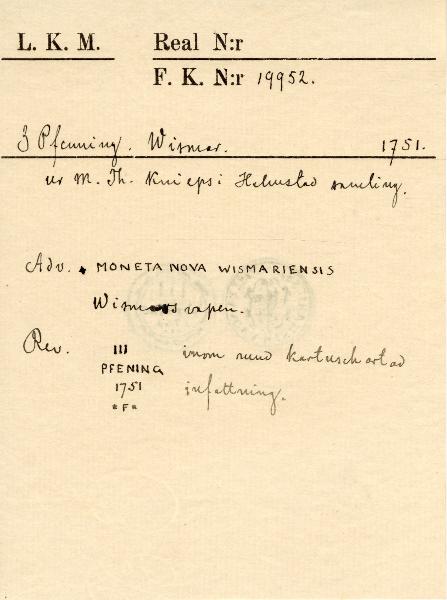 L. K. M. Real N:r
F. K. N:r 19952.
3 Pfenning. Wismar. 1751.
ur M. Th. Knieps i Halmstad samling.
Adv. * MONETA NOVA WISMARIENSIS
Wismars vapen.
Rev. III inom rund kartuschartad
PFENING infattning.
1751
*F*